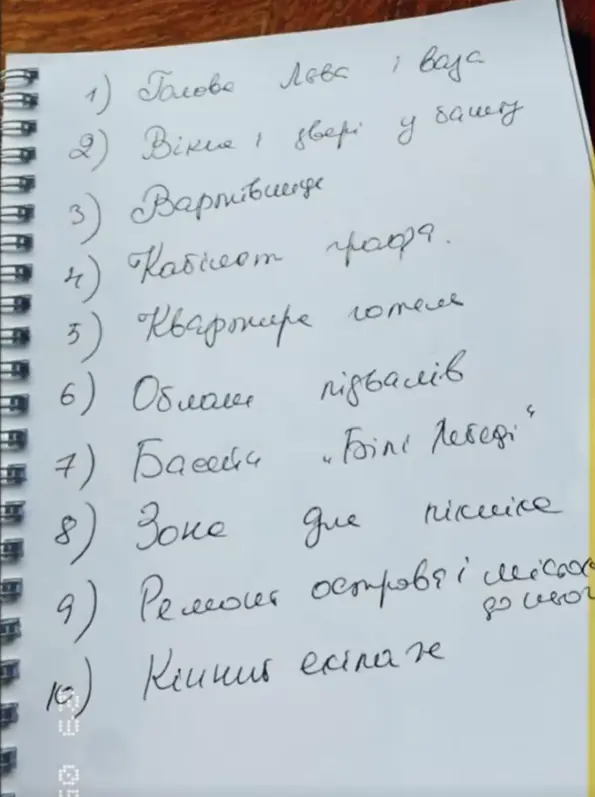 1) Голова Лева і ваза
2) Вікна і двері у башту
3) Вартівниця
4) Кабінет графа.
5) Квартира готель
6) Облаш підвалів
7) Басейн „Білі Лебеді"
8) Зона для пікніка
9) Ремонт острова і
до
10) Кінний екіпаж